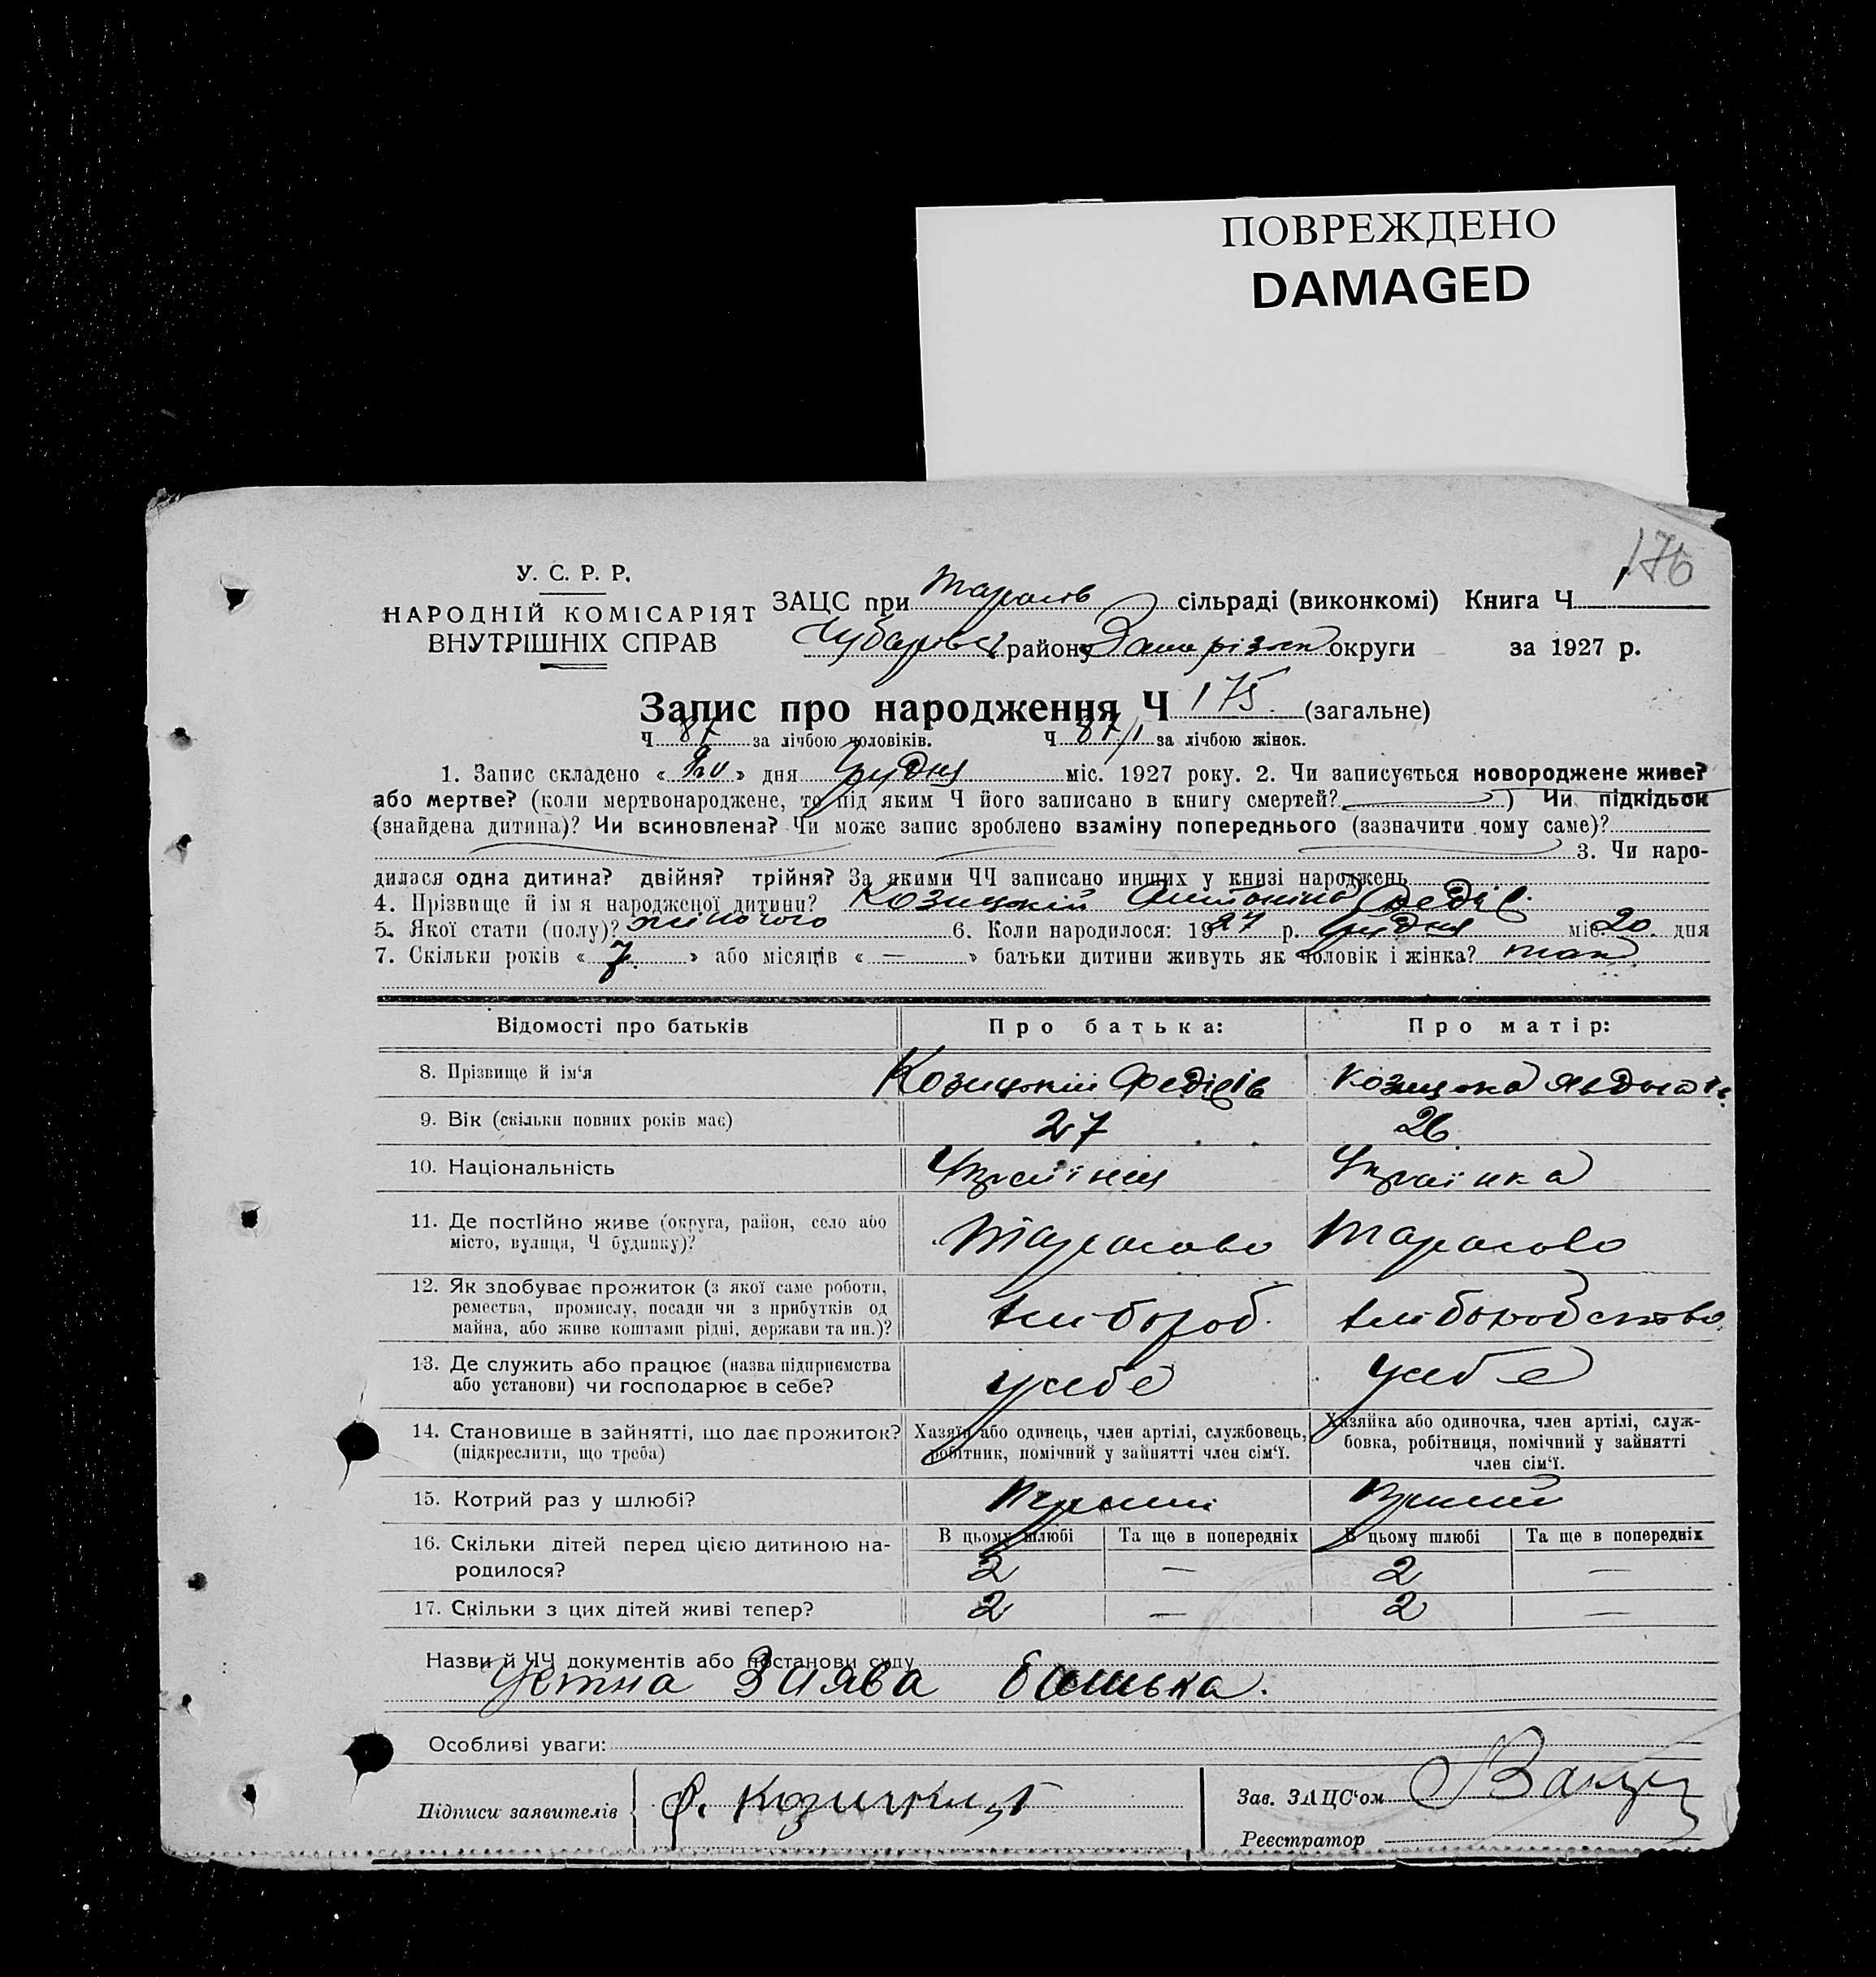 ПОВРЕЖДЕНО
DAMAGED
176
У. С. Р. Р.
НАРОДНІЙ КОМІСАРІЯТ
ВНУТРІШНІХ СПРАВ
ЗАЦС при Тарасів сільраді (виконкомі) Книга Ч
Чубарівс району Запорізьк округи за 1927 р.
Запис про народження Ч 175. (загальне)
Ч 87 за лічбою чоловіків. Ч 87/1 за лічбою жінок.
1. Запис складено « » дня Грудня міс. 1927 року. 2. Чи записується новороджене живе?
або мертве? (коли мертвонароджене, то під яким Ч його записано в книгу смертей? ) Чи підкідьок
(знайдена дитина)? Чи всиновлена? Чи може запис зроблено взаміну попереднього (зазначити чому саме)?
3. Чи наро-
дилася одна дитина? двійня? трійня? За якими ЧЧ записано инших у книзі народжень
4. Прізвище й ім я народженої дитини? Козицкій Антоніна Федіс.
5. Якої стати (полу)? жіночого 6. Коли народилося: 1927 р. Грудня міс. 20. дня
7. Скільки років « 7. » або місяців « — » батьки дитини живуть як чоловік і жінка? так
Відомості про батьків Про батька: Про матір:
8. Прізвище й ім‘я Козицкій Федісів Козицка Явдокія
9. Вік (скільки повних років має) 27 26
10. Національність Українец Українка
11. Де постійно живе (округа, район, село або
місто, вулиця, Ч будинку)? Тарасово Тарасово
12. Як здобуває прожиток (з якої саме роботи,
ремества, промислу, посади чи з прибутків од
майна, або живе коштами рідні, держави та ин.)? хлібороб. хліборобство
13. Де служить або працює (назва підприємства
або установи) чи господарює в себе? у себе у себе
14. Становище в зайнятті, що дає прожиток?
(підкреслити, що треба)
Хазяїн або одинець, член артілі, службовець,
робітник, помічний у зайнятті член сім‘ї.
Хазяйка або одиночка, член артілі, служ-
бовка, робітниця, помічний у зайнятті
член сім‘ї.
15. Котрий раз у шлюбі?
В цьому шлюбі Та ще в попередніх В цьому шлюбі Та ще в попередніх
16. Скільки дітей перед цією дитиною на-
родилося? 2 — 2 —
17. Скільки з цих дітей живі тепер? 2 — 2 —
Назви й ЧЧ документів або постанови суду
Устна Заява батька.
Особливі уваги:
Підписи заявителів Ф. Козицкий
Зав. ЗАЦС‘ом
Реєстратор